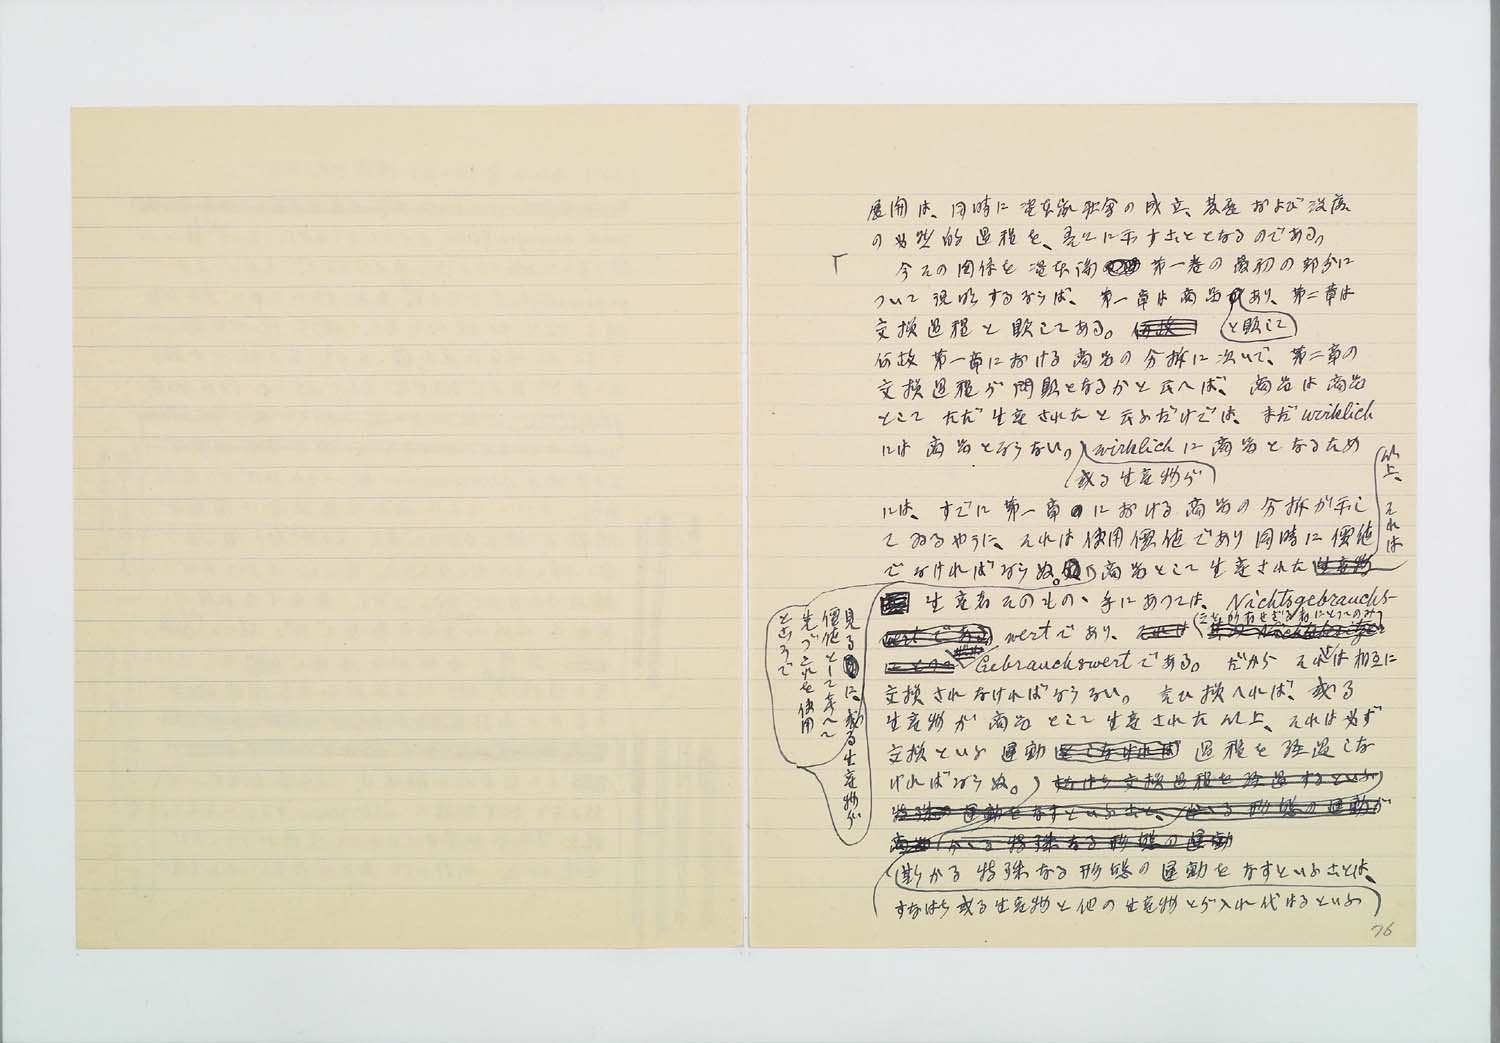 展開は、同時に資本家社会の成立、発展および没落
の必然的過程を、
示すこととなるのである。
今その関係を資本論 第一巻の最初の部分に
ついて説明するならば、第一章は商品
あり、第二章は
交換過程と題してある。
と題して
何故第一章における商品の分析に次いで、第二章の
交換過程が問題となるかと云へば、商品は商品
として ただ生産されたと云ふだけでは、まだ wirklich
には商品とならない。 wirklich に商品となるため
或る生産物が
には、すでに第一章における商品の分析が示し
てゐるやうに、それは使用価値であり同時に価値
でなければならぬ。 商品として生産された
以上、それは
生産者そのもの、手にあつては、Nichtsgebrauchs-
wert であり、
Gebrauchswert である。だから それは相互に
交換されなければならない。言ひ換へれば、或る
生産物が商品として生産された以上、それは必ず
交換といふ運動 過程を経過しな
ければならぬ。
すなはち交換過程を経過するといふ
特殊の運動をなすといふこと、かかる形態の運動が
商品 かかる特殊なる形態の運動
斯かる特殊なる形態の運動をなすといふことは、
すなはち或る生産物と他の生産物とが入れ代はるといふ
見る に、或る生産物が
価値として
先づこれを使用
ところで
76